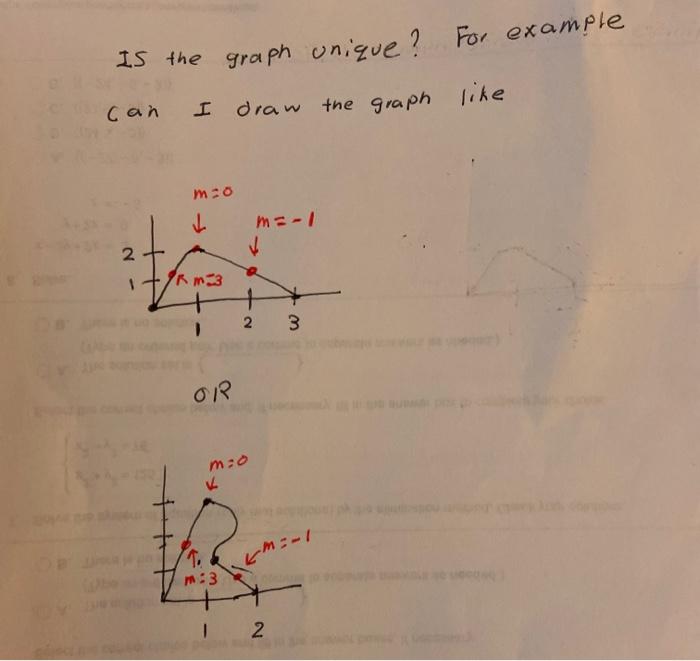 Is the graph unique? For example
can I draw the graph like
m=0
m=-1
2
1
m=3
1 2 3
OR
m=0
m=-1
m=3
1 2